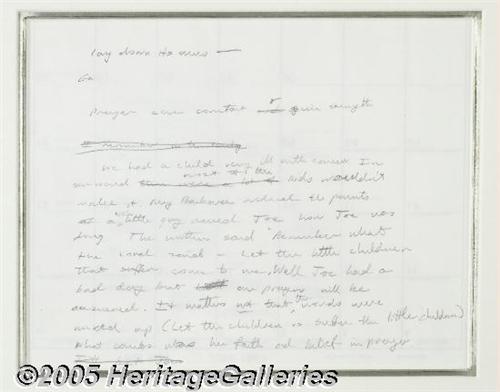 lay down
Prayer can comfort give strength
We had a child very ill with cancer In
our ward most of the kids wouldn't
make it. My asked the parents
of a little guy named Joe how Joe was
doing The mother said "Remember what
the Lord said - Let the little children
that suffer come to me. Well Joe had a
bad day but our prayers will be
answered. It matters not that the words were
mixed up (Let the children or suffer the little children)
what counts was her faith and belief in prayer
©2005 HeritageGalleries